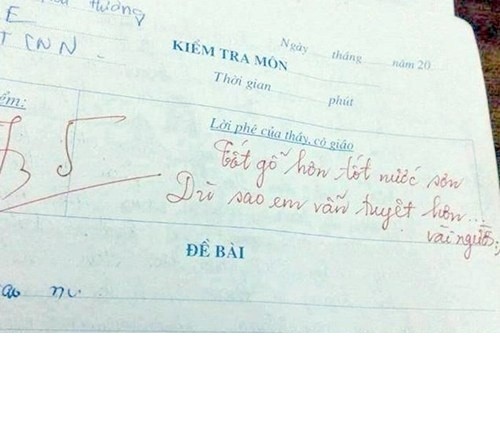 thương
E
T CNN.
KIỂM TRA MÔN
Ngày ..... tháng ..... năm 20
Thời gian ............ phút
Lời phê của thầy, cô giáo
Tốt gỗ hơn tốt nước sơn
Dù sao em vẫn tuyệt hơn...
vài người;
5
ĐỀ BÀI